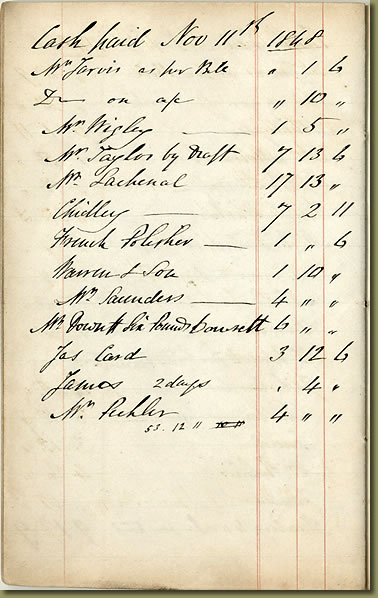 Cash paid Nov 11th 1848
Mr Jarvis as per Bill " 1 6
Do on a/c " 10 "
Mr Wigley — 1 5 "
Mr Taylor by Draft 7 13 6
Mr Lachenal 17 13 "
Chidley — 7 2 11
French Polisher — 1 " 6
Warren & Son 1 10 "
Mr Saunders — 4 " "
Mr Dowsett Six Pounds Dowsett 6 " "
Jas Card 3 12 6
James 2 days . 4 "
Mr Pichler 4 " "
53. 12 "